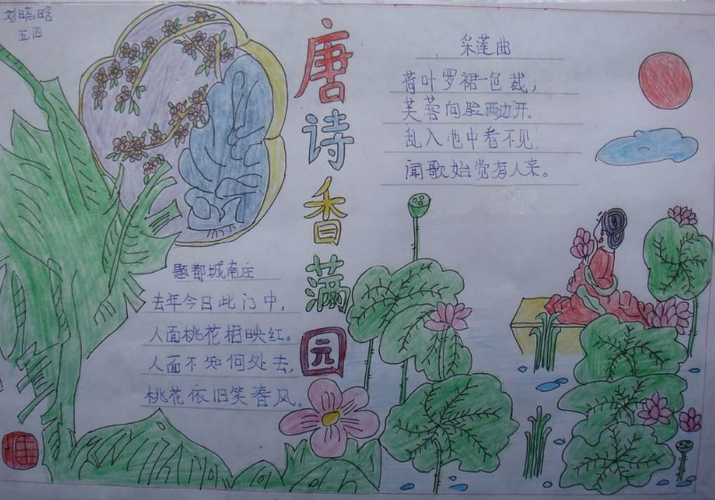 刘晓晗
五四
唐诗香满园
采莲曲
荷叶罗裙一色裁,
芙蓉向脸两边开。
乱入池中看不见,
闻歌始觉有人来。
题都城南庄
去年今日此门中,
人面桃花相映红。
人面不知何处去,
桃花依旧笑春风。